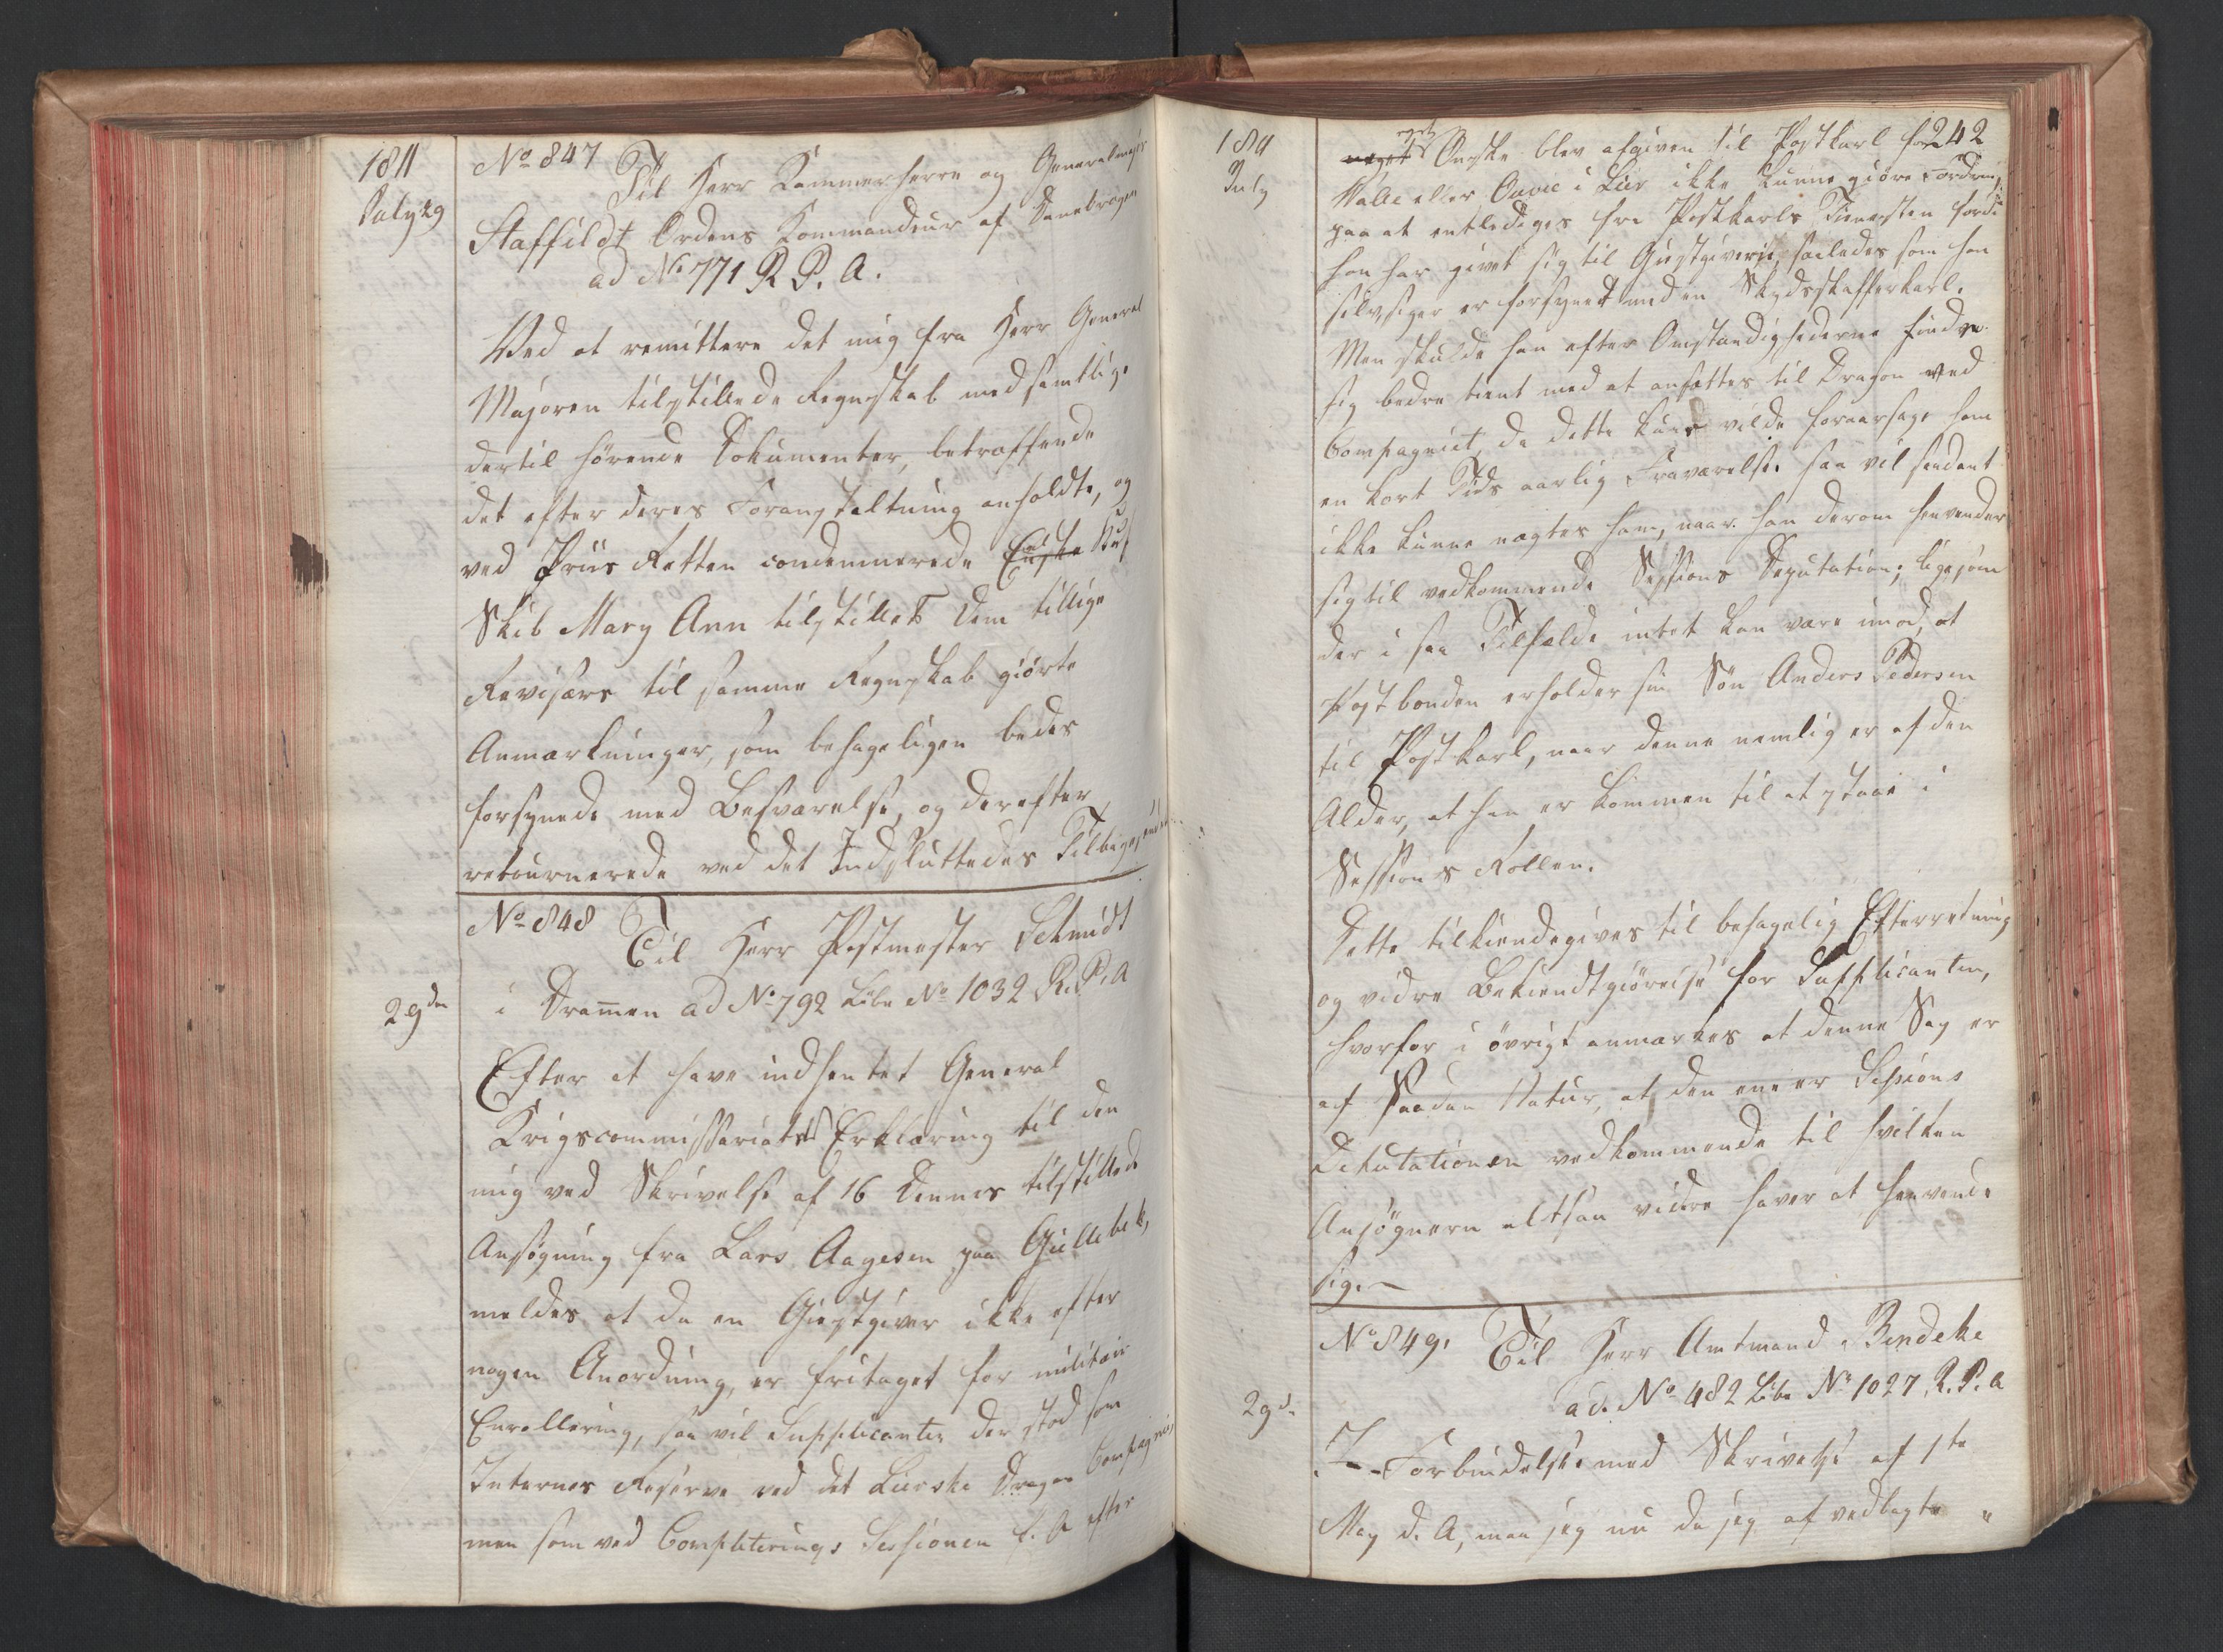 1811
July 29
No 847
Til Herr Kammerherre og Generalmajor
Staffeldt Ordens Kommandeur af Danebrogen
ad No 771 R. P. A.
Ved at remittere det mig fra Herr General
Majoren tilstillede Regnskab med samtlige
dertil hørende Dokumenter, betræffende
det efter deres Foranstaltning anholdte, og
ved Priis Retten condemnerede
Skib Mary Ann tilstilles Dem tillige
Revisors til samme Regnskab giørte
Anmærkninger, som behageligen bedes
forsynede med Besvarelse, og derefter
retournerede ved det Indsluttedes Tilbage
No 848
Til Herr Postmester Schmidt
29de
i Dramen ad No 792 Litr No 1032 R. P. A
Efter at have indhentet General
Krigscommissariatets Erklæring til den
mig ved Skrivelse af 16 dennes tilstillede
Ansøgning fra Lars Aagesen paa Gullebek,
meldes, at da en Giestgiver ikke efter
nogen Anordning, er fritaget for militair
Enrollering, saa vil Supplicanten der stod som
Internes Reserve ved det Lierske Dragon Compagnie
men som ved Completerings Sessionen f. A efter
1811
July
242
eget
Ønske blev afgiven til Postkarl for
i Lier ikke kunne giøre Fordring
paa at entlediges fra Postkarls Tienesten fordi
han har givet sig til Giestgiverie, saaledes som han
selv siger er forsynet med en Skydsskafferkarl.
Men skulde han efter Omstændighederne finde
sig bedre tient med at ansættes til Dragon ved
Compagniet, da dette kun vilde foraarsage ham
en kort Tids aarlig Fraværelse saa vil saadant
ikke kunne nægtes ham, naar han derom henvender
sig til vedkommende Sessions Deputation; ligesom
der i saa Tilfælde intet kan være imod, at
Postbonden erholder sin Søn Anders Pedersen
til Postkarl, naar denne nemlig er af den
Alder, at han er kommen til at staae i
Sessions Rollen.
Dette tilkiendegives til behagelig Efterretning
og vidre Bekiendtgiørelse for Supplicanten,
hvorfor i øvrigt anmærkes at denne Sag er
af saadan Natur, at den ene er Sessions
Deputationen vedkommende til hvilken
Ansøgeren altsaa vidre haver at henvende
sig.
No 849.
Til Herr Amtmand Bendeke
ad. No 482 Litr No 1027 R. P. A
29de
I Forbindelse med Skrivelse af 1te
May d. A, maa jeg nu da jeg af vedlagte